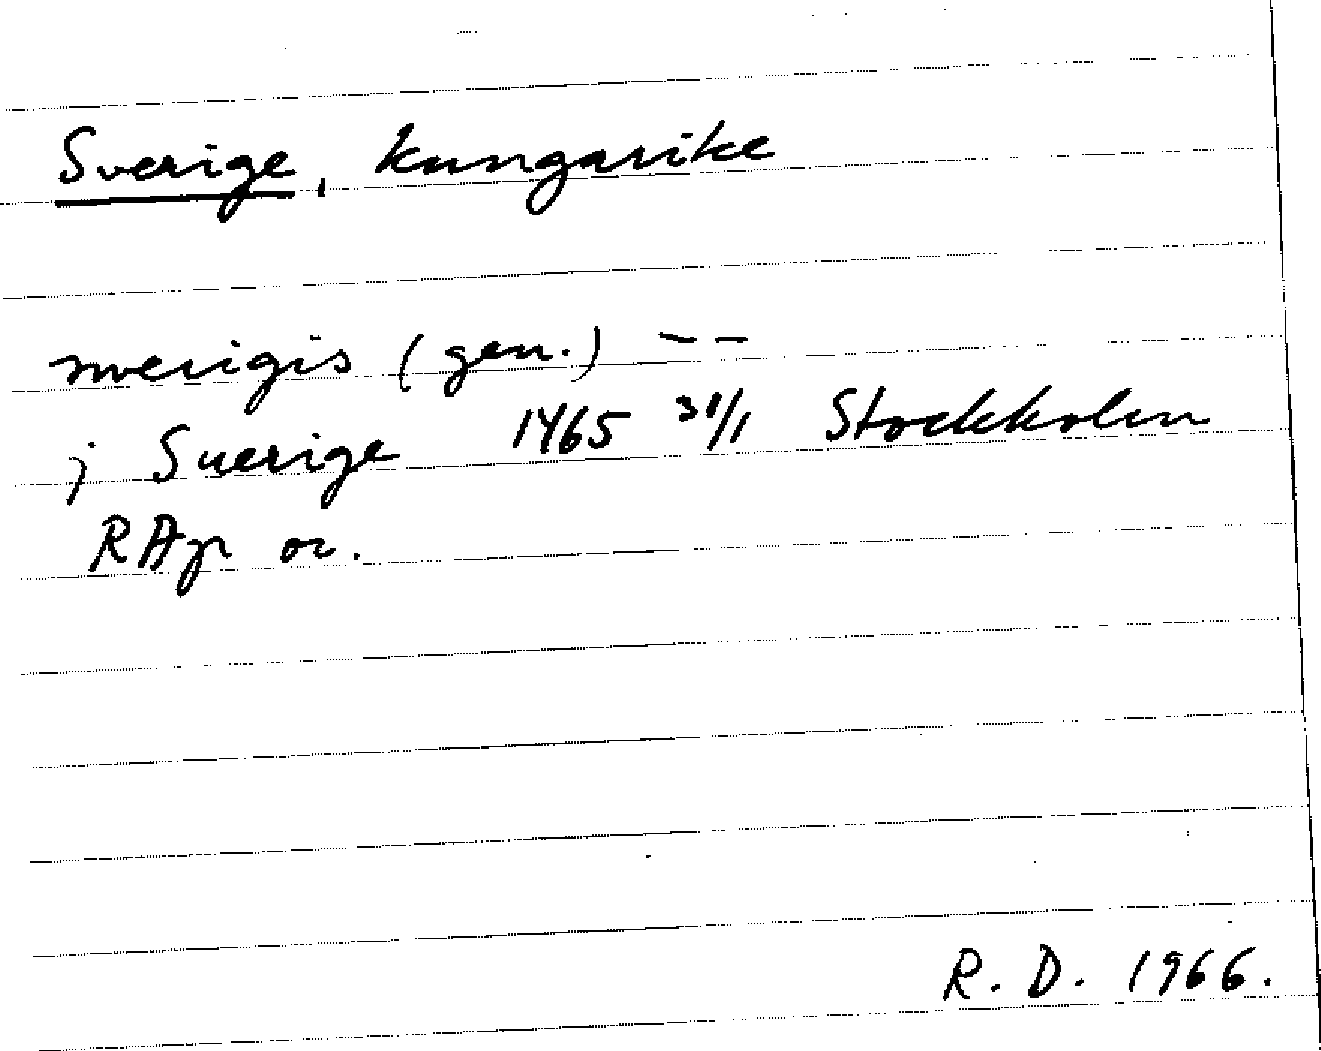 Sverige, kungarike
swerigis (gen.) --
j Suerige 1465 31/1 Stockholm
RAp or.
R. D. 1966.